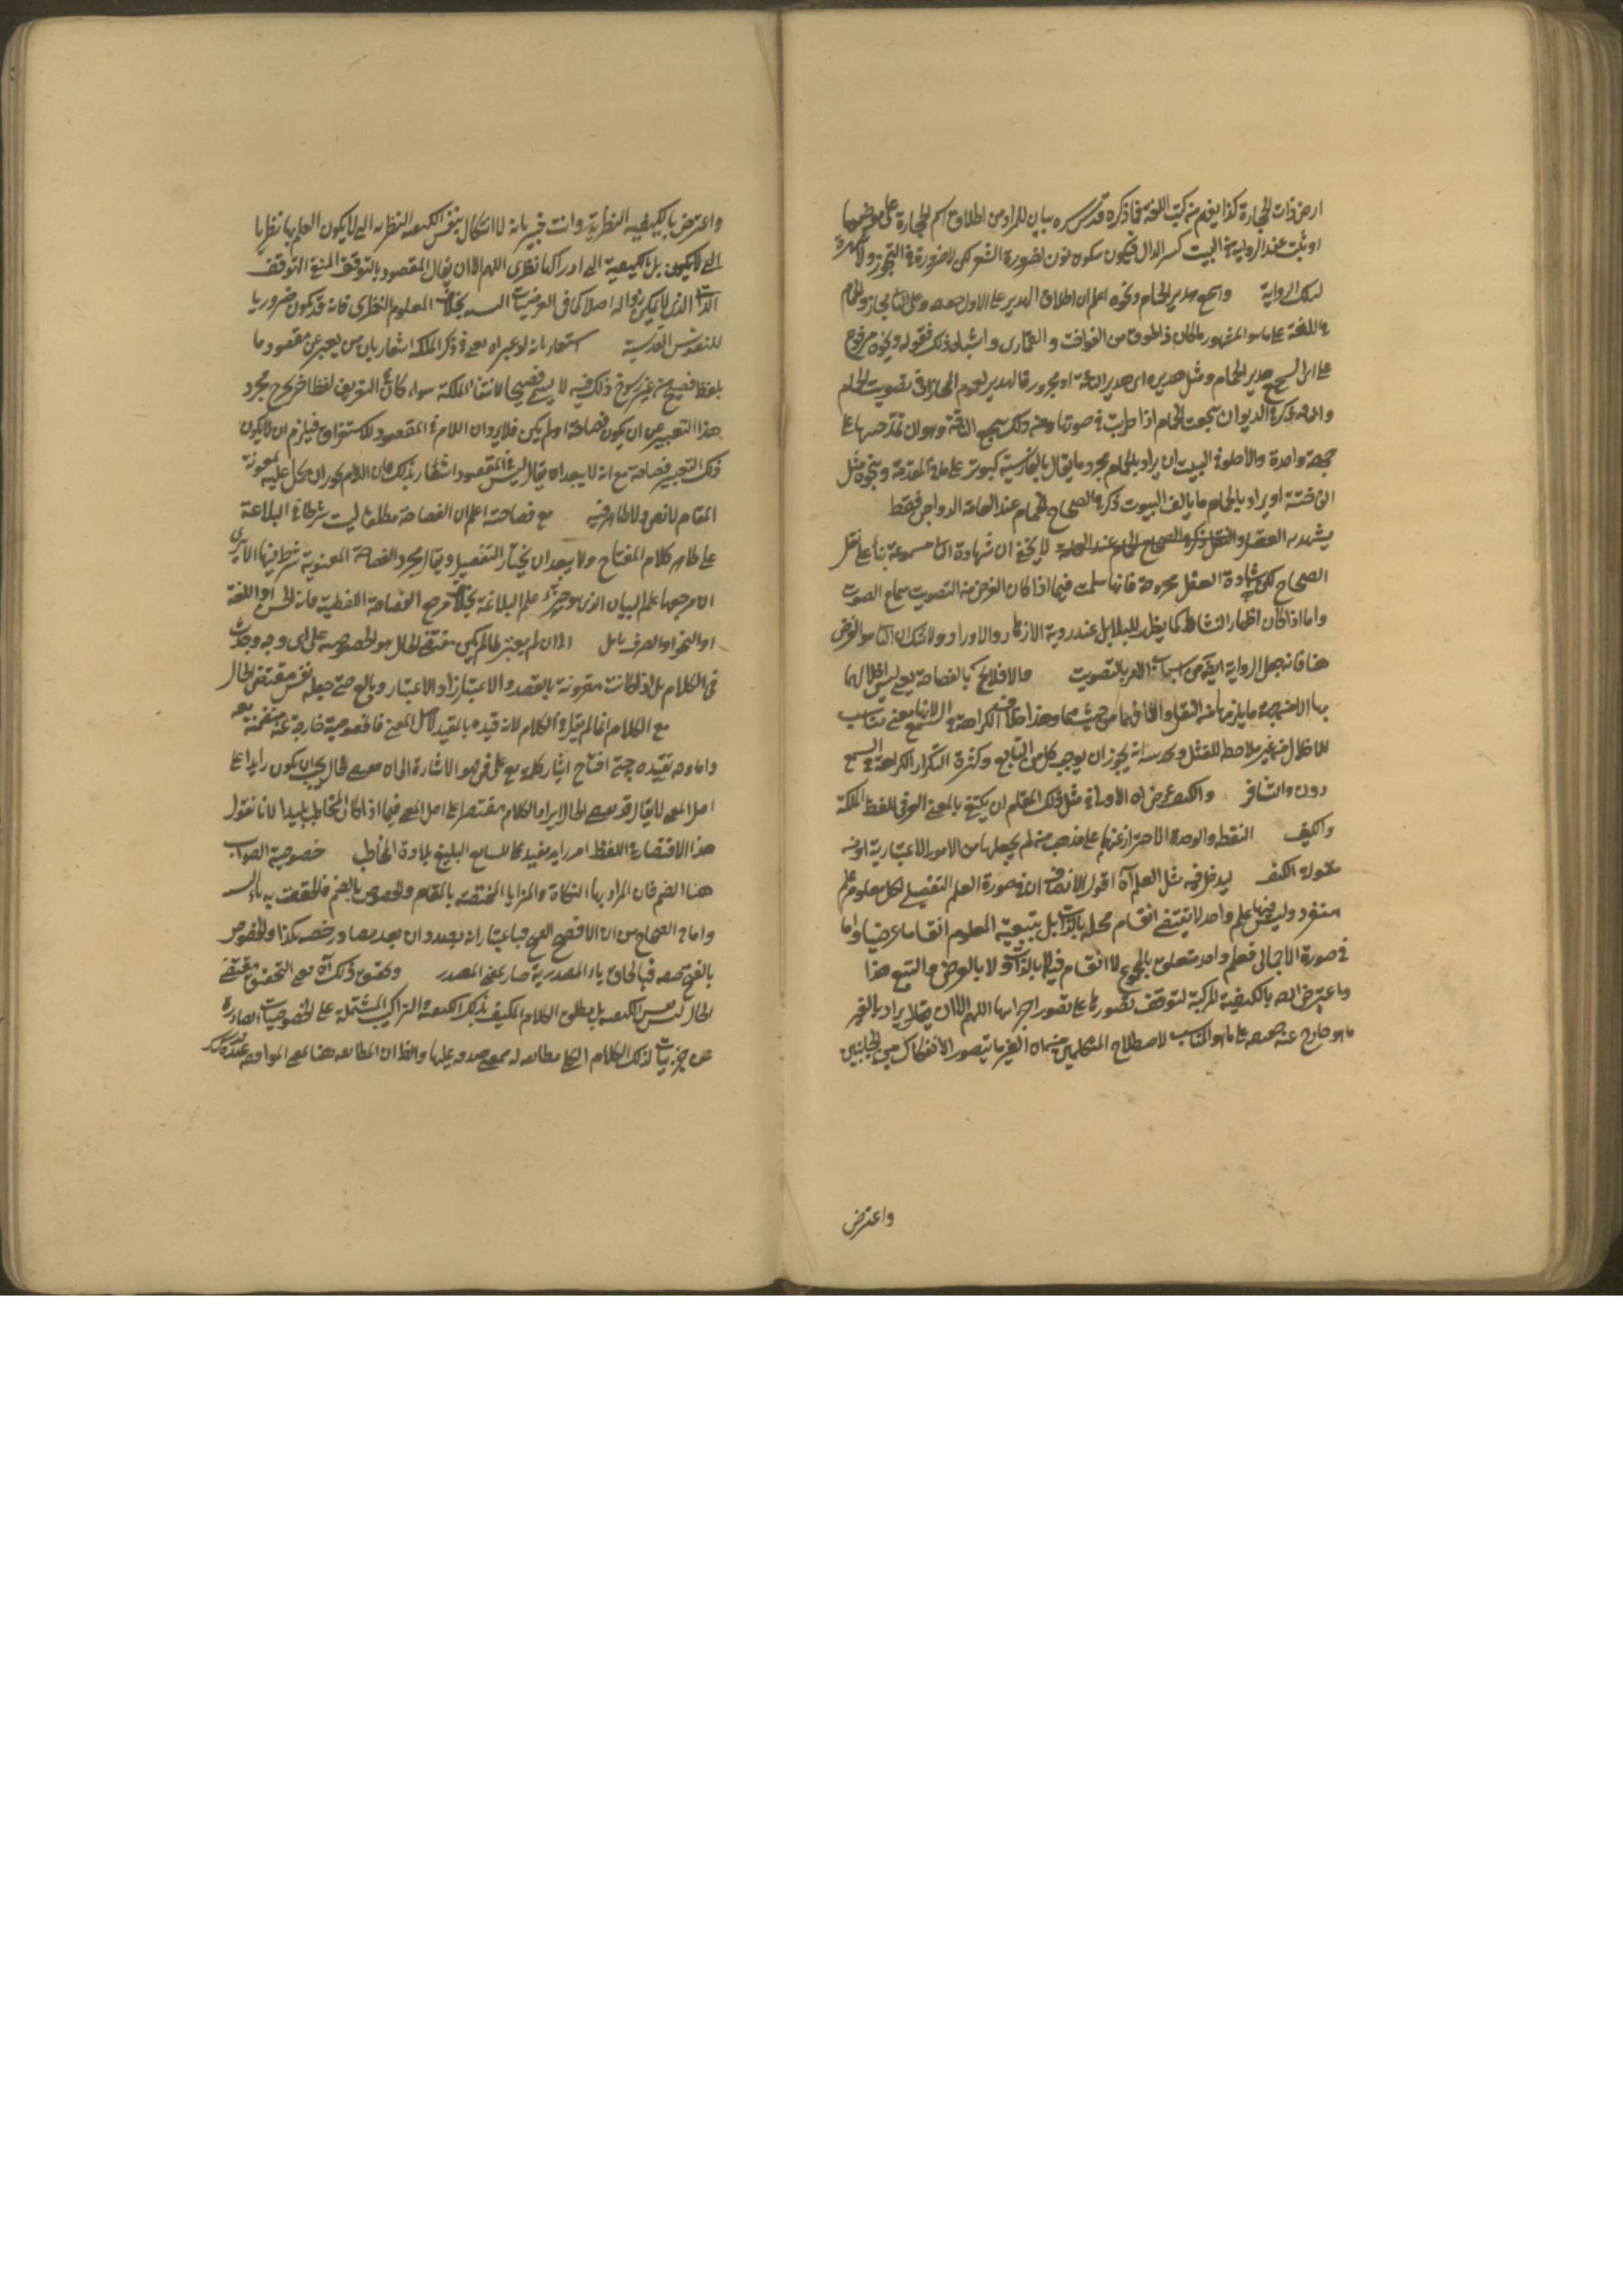 ارض ذات الحجارة كذا يفهم من كتب اللغة فما ذكره قدس سره بيان للمراد من اطلاق اسم الحجارة على موضعها
او ثبت عند الرواية في البيت كسر الدال فيكون سكونه نون لضرورة الشعر لكن لا ضرورة في التجوز ولا كسرة
تلك الرواية واسجع هدير الحمام ونحوه اعلم ان اطلاق الهدير على الاول حقيقة وعلى الثاني مجاز والحمام
في اللغة على ما هو المشهور ما كان ذا طوق من الفواخت و القمارى واشباه ذلك فقوله ونحوه مرفوع
على اى السجع هدير الحمام ومثل هديره اى هدير الناقة او مجرور فالهدير لعموم المجاز في تصويت الحمام
والناقة ذكر في الديوان سجعت الحمام اذا طربت في صوتها وعنه وكذلك سجع الناقة وهو ان تمد حنينها على
جهة واحدة والاصل في البيت ان يراد بالحمام مجرد ما يقال بالفارسية كبوتر على ما في المقدمة وبنحوه مثل
الفاختة او يراد بالحمام ما يألف البيوت ذكر في الصحاح الحمام عند العامة الدواجن فقط
يشهد به العقل والنقل ذكر في الصحاح الحمام عند العامة لا يخفى ان شهادة الثاني مسموعة بناء على نقل
الصحاح لكن شهادة العقل مجروحة فانها سلمت فيما اذا كان الغرض من التصويت سماع الصوت
واما اذا كان اظهار النشاط كما يظهر للبلابل عند رؤية الازهار والاوراد ولا شك ان الثاني هو الغرض
هنا فانه جعل الرواية ايضا من اسباب الامر بالتصويت والا فلا يخل بالفصاحة يعنى ليس اخلالها
بها الا من جهة ما يلزمها من الثقل والا فانها من حيث هما وهذا خلاف الكراهة في السمع
للاخلال من غير ملاحظة للثقل وكدرسه انه يجوز ان يوجب كل من التتابع وكثرة التكرار الكراهة في السمع
دون التنافر والكيف عرض اه الاولى في مثل ذلك المقام ان يكتفى بالمعنى العرفى للفظ الملكة
والكيف النقطة والوحدة الاحتراز عنهما على مذهب من لم يجعلها من الامور الاعتبارية او من
مقولة الكيف ليدخل فيه مثل العلم آه اقول الانصاف ان في صورة العلم التفصيلى لكل معلوم علم
منفرد وليس فيها علم واحد لا يقتضى انقسام محله بالذات بل بتبعية المعلوم انقساما عرضيا واما
في صورة الاجمالى فعلم واحد متعلق بالجميع لا انقسام فيه لا بالذات ولا بالعرض والتبع هذا
واعترض ايضا بالكيفية المركبة لتوقف تصورها على تصور اجزائها اللهم الا ان يقال يراد بالغير
ما هو خارج عنه حقيقة على ما هو المناسب لاصطلاح المتكلمين من ان الغير ما يتصور الانفكاك من الجانبين
واعترض
واعترض بالكيفية النظرية وانت خبير بانه لا اشكال بنفس الكيفية النظرية التى لا يكون العلم بها نظريا
التى لا يكون بل بكيفية التى ادراكها نظرى اللهم الا ان يقال المقصود بالتوقف المنفى التوقف
الذاتى الذى لا يمكن زواله اصلا كما في العرضيات النسبية بخلاف المعلوم النظرى فانه قد يكون ضروريا
للنفوس القدسية اشعار بانه لو عبر اه يعنى في ذكر الملكة اشعار بان من يعبر عن مقصود ما
بلفظ فصيح من غير رسوخ ذلك فيه لا يسمى فصيحا لانتفاء الملكة سواء كان في التعريف لفظ اخر يخرج مجرد
هذا التعبير عن ان يكون فصاحة او لم يكن فلا يرد ان اللام في المقصود للاستغراق فيلزم ان لا يكون
ذلك التعبير فصاحة مع انه لا يبعد ان يقال ليس في المقصود اشعار بذلك فان اللام يجوز ان يحمل عليه بمعونة
المقام لا نص ولا ظاهر فيه مع فصاحته اعلم ان الفصاحة مطلقا ليست شرطا في البلاغة
على ظاهر كلام المفتاح ولا يبعد ان يختار التفصيل ويقال مجرد الفصاحة المعنوية شرط فيها الا يرى
ان مرجعها علم البيان الذى هو جزء علم البلاغة بخلاف مرجع الفصاحة اللفظية فانه الحس او اللغة
او النحو او الصرف تأمل اذ ان لم يعتبر ظالم يكن مقتضى الحال هو الخصوصية على اى وجه وجدت
في الكلام بل اذا كانت مقرونة بالقصد والاعتبار زاد الاعتبار وبالغ حتى جعله نفس مقتضى الحال
مع الكلام انما لم يقل في الكلام لانه قيده بالمقيد لاصل المعنى فالخصوصية خارجة عنه منضمة معه
واما وجه تقييده حتى احتاج ايثار كلمة مع على في فهو الاشارة الى ان مقتضى الحال يجب ان يكون زايدا على
اصل المعنى لا يقال قد يقتضى الحال ايراد الكلام مقتصرا على اصل المعنى فيما اذا كان المخاطب بليدا لانا نقول
هذا الاقتصار على اللفظ امر زايد يفيد كما للسامع البليغ بلادة المخاطب خصوصية الصواب
هنا الضم فان المراد بها النكاة والمزايا المختصة بالمقام والخصوص بالضم فالحقت به ياء النسبة
واما في الصحاح من ان الافصح الفتح فباعتبار انه بصدد ان يعد مصادر خصه بكذا والخصوص
بالفتح صفة فبالحاق ياء المصدرية صار بمعنى المصدر وتحقيق ذلك آه يعنى التحقيق مقتضى
الحال ليس نفس الكيفية بل مطلق الكلام المكيف بتلك الكيفية والتراكيب المشتملة على الخصوصيات الصادرة
عن جزئيات لذلك الكلام الكلى مطابقة له بمعنى صدقه عليها والظ ان المطابقة هنا بمعنى الموافقة